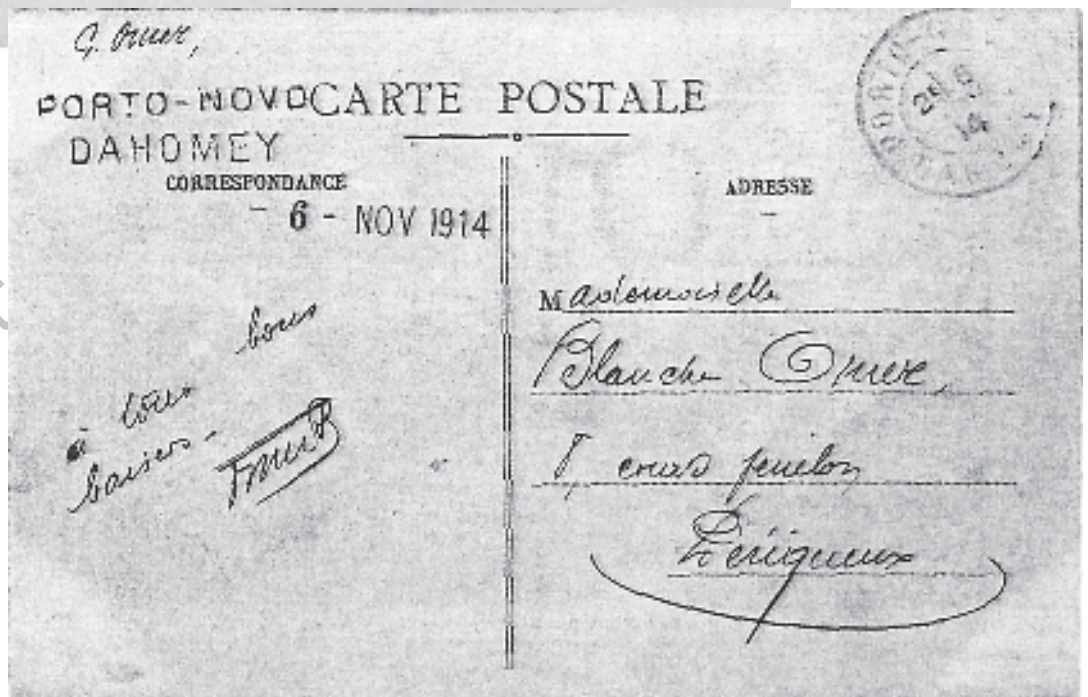 G. Omer,
PORTO-NOVO
DAHOMEY
CARTE POSTALE
CORRESPONDANCE
- 6 - NOV 1914
à tous bons
baisers -
ADRESSE
Mademoiselle
Blanche Omer,
8, cours fenelon
Périgueux
PORTO-
29
14